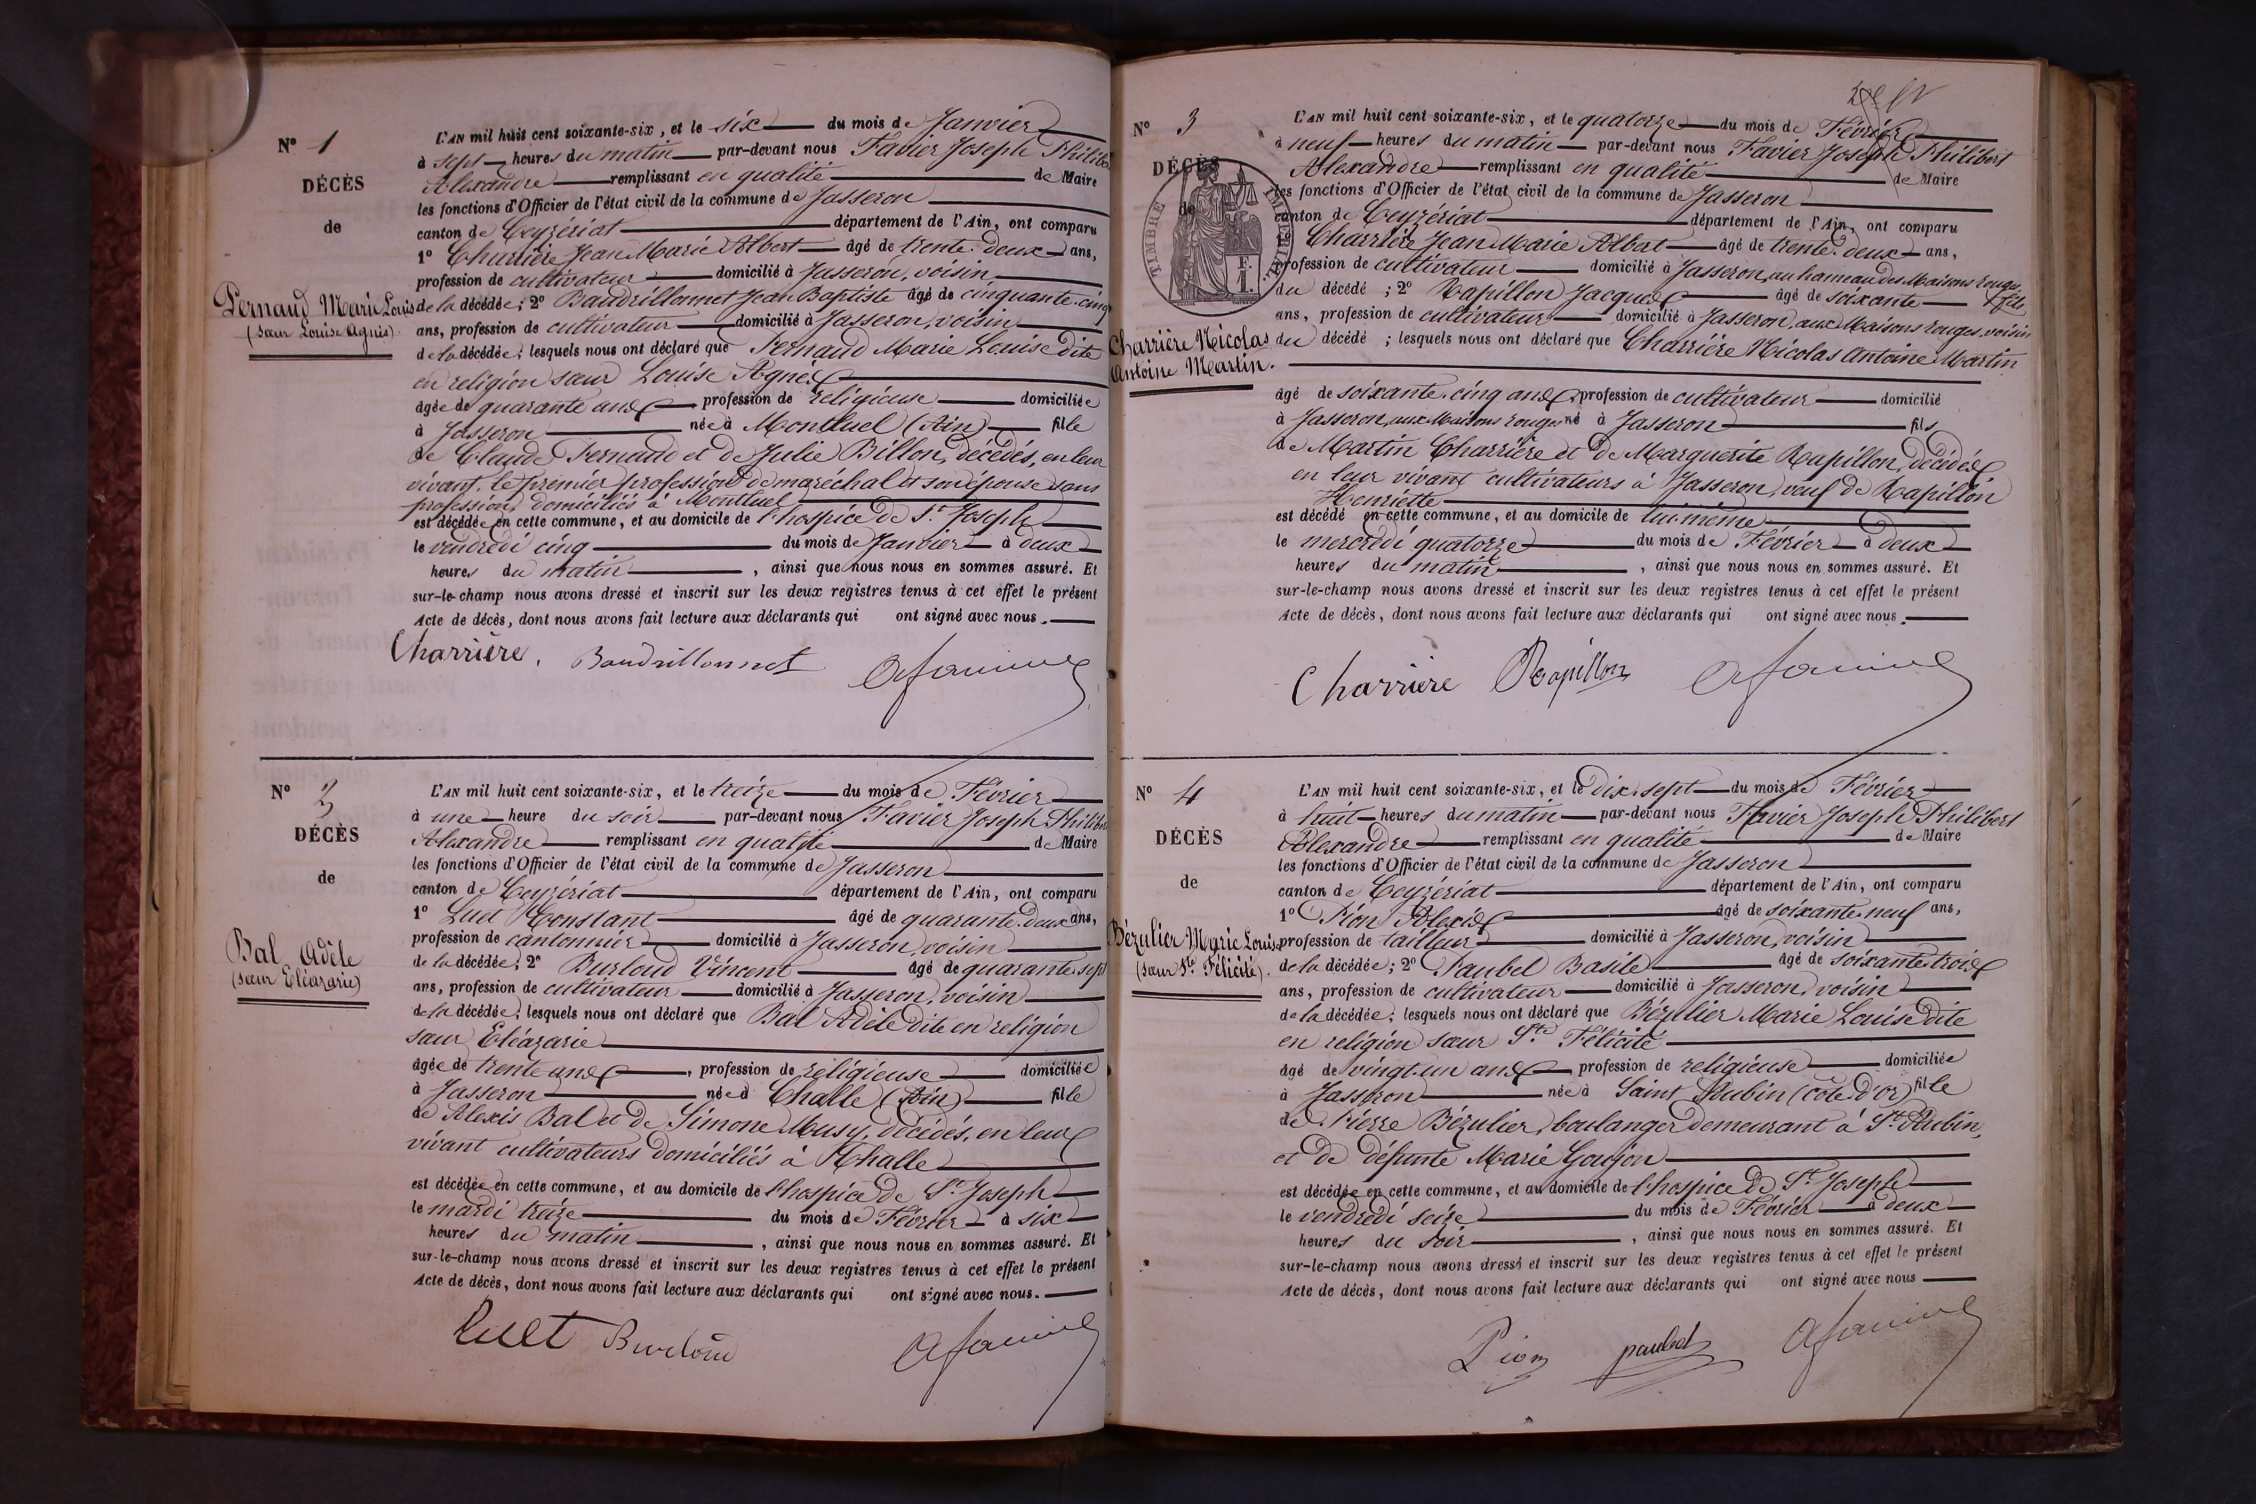 N° 1
DÉCÈS
de
Pernaud Marie Louise
(sœur Louise Agnès).
L'AN mil huit cent soixante-six, et le six du mois de Janvier
à sept heures du matin par-devant nous Favier Joseph Philibert
Alexandre remplissant en qualité de Maire
les fonctions d'Officier de l'état civil de la commune de Jasseron
canton de Ceyzériat département de l'Ain, ont comparu
1° Charrière Jean Marie Albert âgé de trente-deux ans,
profession de cultivateur domicilié à Jasseron, voisin
de la décédée; 2° Baudrillonnet Jean Baptiste âgé de cinquante-cinq
ans, profession de cultivateur domicilié à Jasseron, voisin
de la décédée; lesquels nous ont déclaré que Pernaud Marie Louise dite
en religion sœur Louise Agnès
âgée de quarante ans profession de religieuse domiciliée
à Jasseron née à Montluel (Ain) fille
de Claude Pernaud et de Julie Billon, décédés, en leur
vivant, le premier profession de maréchal et son épouse sans
profession, domiciliés à Montluel
est décédée en cette commune, et au domicile de l'hospice de St. Joseph
le vendredi cinq du mois de Janvier à deux
heures du matin, ainsi que nous nous en sommes assuré. Et
sur-le-champ nous avons dressé et inscrit sur les deux registres tenus à cet effet le présent
Acte de décès, dont nous avons fait lecture aux déclarants qui ont signé avec nous.
Charrière. Baudrillonnet
N° 2
DÉCÈS
de
Bal Adèle
(sœur Eléazarie)
L'AN mil huit cent soixante-six, et le treize du mois de Février
à une heure du soir par-devant nous Favier Joseph Philibert
Alexandre remplissant en qualité de Maire
les fonctions d'Officier de l'état civil de la commune de Jasseron
canton de Ceyzériat département de l'Ain, ont comparu
1° Luet Constant âgé de quarante-deux ans,
profession de cantonnier domicilié à Jasseron, voisin
de la décédée; 2° Burloud Vincent âgé de quarante-sept
ans, profession de cultivateur domicilié à Jasseron, voisin
de la décédée; lesquels nous ont déclaré que Bal Adèle dite en religion
sœur Eléazarie
âgée de trente ans, profession de religieuse domiciliée
à Jasseron née à Challe (Ain) fille
de Alexis Bal et de Simone Musy, décédés, en leur
vivant cultivateurs domiciliés à Challe
est décédée en cette commune, et au domicile de l'hospice de St. Joseph
le mardi treize du mois de Février à six
heures du matin, ainsi que nous nous en sommes assuré. Et
sur-le-champ nous avons dressé et inscrit sur les deux registres tenus à cet effet le présent
Acte de décès, dont nous avons fait lecture aux déclarants qui ont signé avec nous.
Luet Burloud
N° 3
DÉCÈS
de
TIMBRE IMPÉRIAL
F.
1.
Charrière Nicolas
Antoine Martin.
L'AN mil huit cent soixante-six, et le quatorze du mois de Février
à neuf heures du matin par-devant nous Favier Joseph Philibert
Alexandre remplissant en qualité de Maire
les fonctions d'Officier de l'état civil de la commune de Jasseron
canton de Ceyzériat département de l'Ain, ont comparu
1° Charrière Jean Marie Albert âgé de trente-deux ans,
profession de cultivateur domicilié à Jasseron, au hameau des Maisons rouges, fils
du décédé; 2° Rapillon Jacques âgé de soixante
ans, profession de cultivateur domicilié à Jasseron, aux Maisons rouges, voisin
du décédé; lesquels nous ont déclaré que Charrière Nicolas Antoine Martin
âgé de soixante-cinq ans, profession de cultivateur domicilié
à Jasseron, aux Maisons rouges né à Jasseron fils
de Martin Charrière et de Marguerite Rapillon, décédés
en leur vivant cultivateurs à Jasseron, veuf de Rapillon
Henriette
est décédé en cette commune, et au domicile de lui-même
le mercredi quatorze du mois de Février à deux
heures du matin, ainsi que nous nous en sommes assuré. Et
sur-le-champ nous avons dressé et inscrit sur les deux registres tenus à cet effet le présent
Acte de décès, dont nous avons fait lecture aux déclarants qui ont signé avec nous.
Charrière Rapillon
N° 4
DÉCÈS
de
Bézulier Marie Louise
(sœur Ste Félicité).
L'AN mil huit cent soixante-six, et le dix-sept du mois de Février
à huit heures du matin par-devant nous Favier Joseph Philibert
Alexandre remplissant en qualité de Maire
les fonctions d'Officier de l'état civil de la commune de Jasseron
canton de Ceyzériat département de l'Ain, ont comparu
1° Pion Alexis âgé de soixante-neuf ans,
profession de tailleur domicilié à Jasseron, voisin
de la décédée; 2° Paubel Basile âgé de soixante-trois
ans, profession de cultivateur domicilié à Jasseron, voisin
de la décédée; lesquels nous ont déclaré que Bézulier Marie Louise dite
en religion sœur Ste Félicité
âgé de vingt-un ans profession de religieuse domiciliée
à Jasseron née à Saint Aubin (côte d'or) fille
de Pierre Bézulier, boulanger demeurant à St. Aubin,
et de défunte Marie Goujon
est décédée en cette commune, et au domicile de l'hospice de St. Joseph
le vendredi seize du mois de Février à deux
heures du soir, ainsi que nous nous en sommes assuré. Et
sur-le-champ nous avons dressé et inscrit sur les deux registres tenus à cet effet le présent
Acte de décès, dont nous avons fait lecture aux déclarants qui ont signé avec nous
Pion paubel